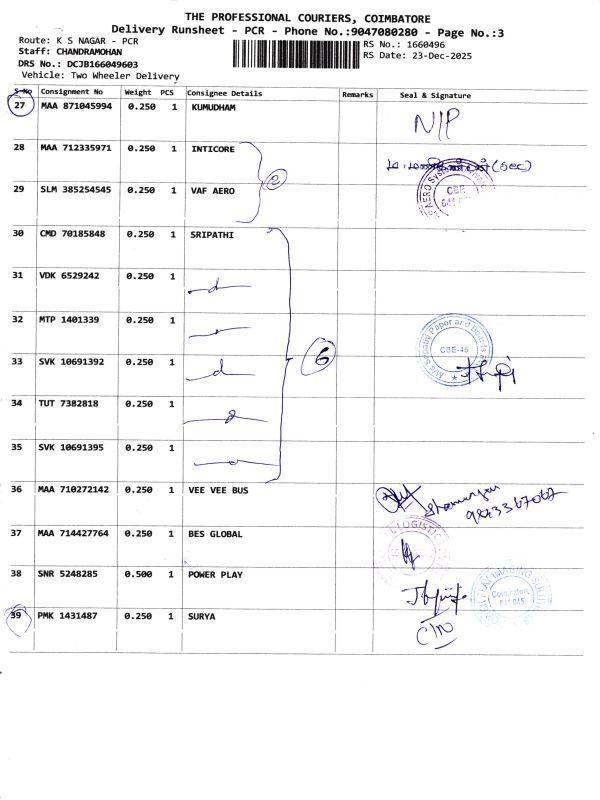 THE PROFESSIONAL COURIERS, COIMBATORE
Delivery Runsheet - PCR - Phone No.:9047080280 - Page No.:3
Route: K S NAGAR - PCR
RS No.: 1660496
Staff: CHANDRAMOHAN
RS Date: 23-Dec-2025
DRS No.: DCJB166049603
Vehicle: Two Wheeler Delivery
S No Consignment No Weight PCS Consignee Details Remarks Seal & Signature
27 MAA 871045994 0.250 1 KUMUDHAM N/P
28 MAA 712335971 0.250 1 INTICORE (Sec)
29 SLM 385254545 0.250 1 VAF AERO
CBE
30 CMD 70185848 0.250 1 SRIPATHI
31 VDK 6529242 0.250 1
32 MTP 1401339 0.250 1
Sripathi Paper and Boards
CBE-45
33 SVK 10691392 0.250 1
6
34 TUT 7382818 0.250 1
35 SVK 10691395 0.250 1
36 MAA 710272142 0.250 1 VEE VEE BUS
37 MAA 714427764 0.250 1 BES GLOBAL
LOGISTIC
38 SNR 5248285 0.500 1 POWER PLAY
IMAGING SOLUTIONS
Coimbatore
641 045
39 PMK 1431487 0.250 1 SURYA